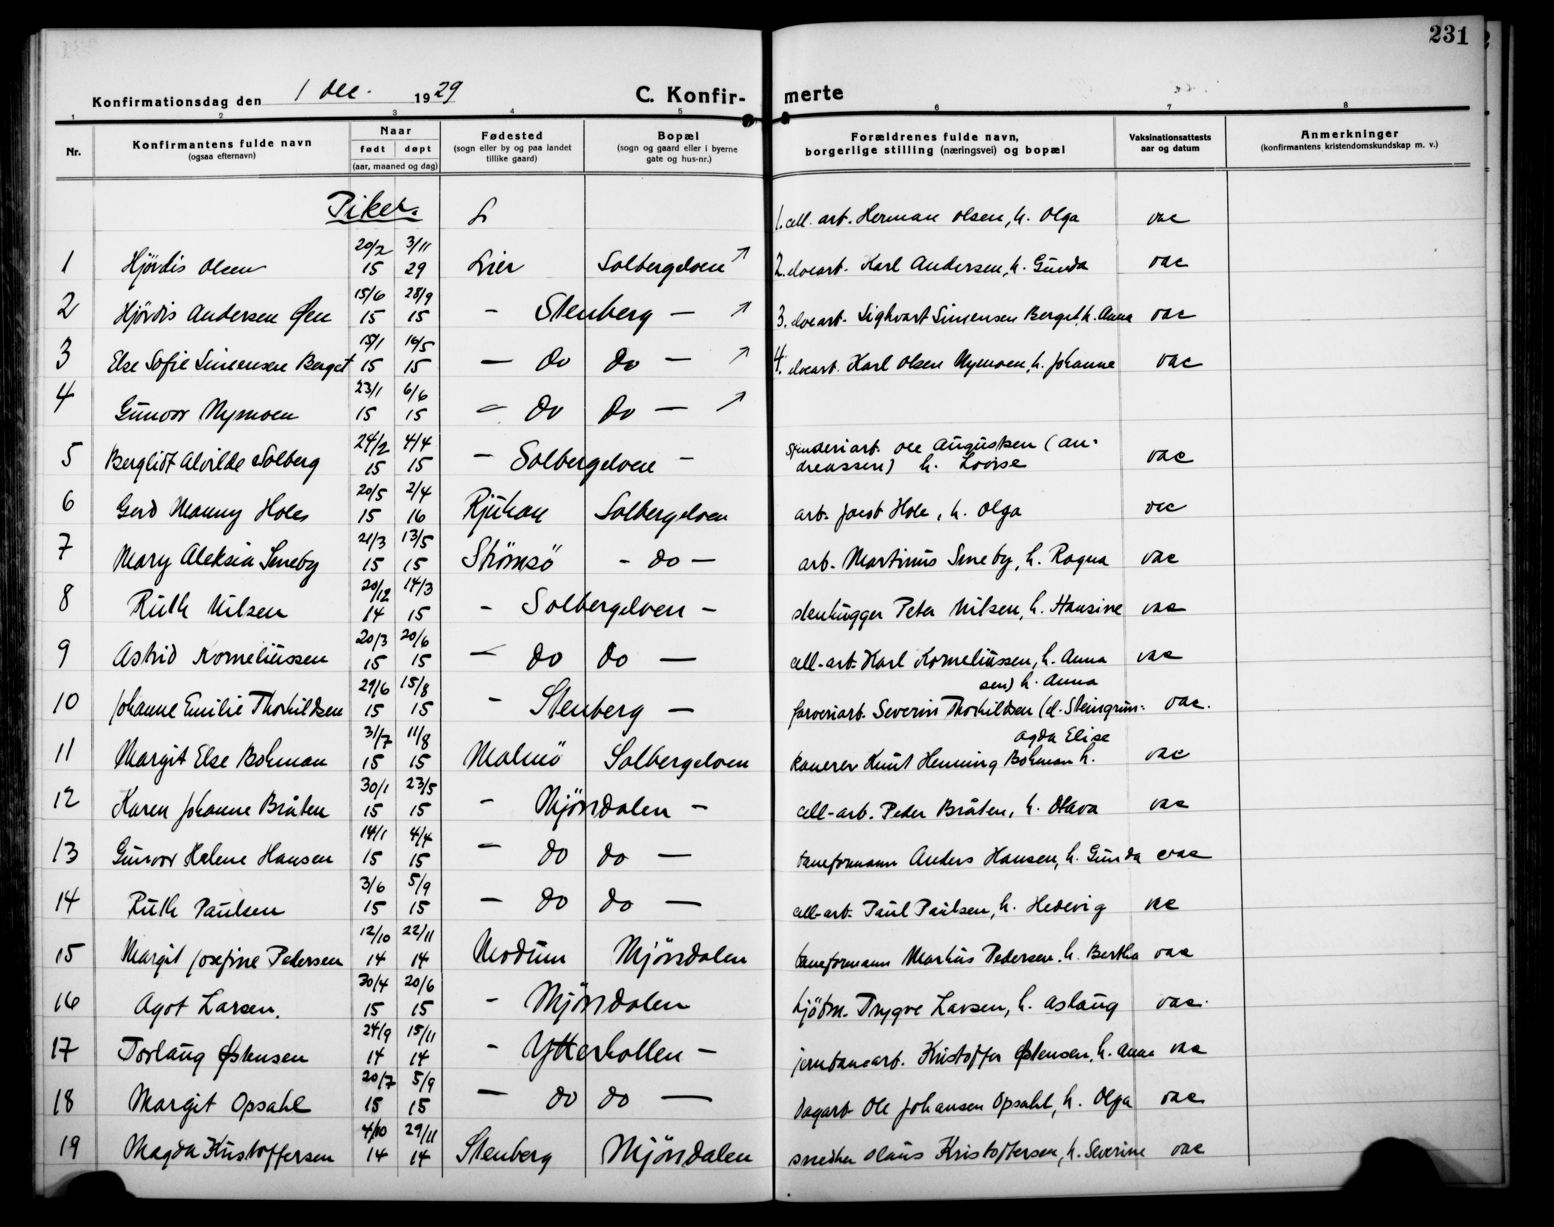 231
Konfirmationsdag den 1 dec. 1929 C. Konfir- merte
1 2 3 4 5 6 7 8
Nr. Konfirmantens fulde navn (ogsaa efternavn) Naar født døpt (aar, maaned og dag) Fødested (sogn eller by og paa landet tillike gaard) Bopæl (sogn og gaard eller i byerne gate og hus-nr.) Forældrenes fulde navn, borgerlige stilling (næringsvei) og bopæl Vaksinationsattests aar og datum Anmerkninger (konfirmantens kristendomskundskap m. v.)
Piker. L 1. cell. arb. Herman Olsen, h. Olga vac
20/2 3/11
1 Hjördis Olsen 15 29 Lier Solbergelven ↗ 2. elvearb. Karl Andersen, h. Gunda vac
15/6 28/9
2 Hjördis Andersen Øen 15 15 - Stenberg - ↗ 3. elvearb. Sighvart Simensen Berget, h. Anna vac
15/1 16/5
3 Else Sofie Simensen Berget 15 15 - do do - ↗ 4. elvearb. Karl Olsen Nymoen, h. Johanne vac
23/1 6/6
4 Gunvor Nymoen 15 15 - do do - ↗
24/2 4/4
5 Bergliot Alvilde Solberg 15 15 - Solbergelven - spinderiarb. Ole Augustsen (An-
dreassen) h. Lovise vac
20/5 2/4
6 Gerd Manny Holes 15 16 Rjukan Solbergelven arb. Jacob Hole, h. Olga vac
21/3 13/5
7 Mary Aleksia Smeby 15 15 Strømsö - do - arb. Martinus Smeby, h. Ragna vac
20/12 14/3
8 Ruth Nilsen 14 15 - Solbergelven - stenhugger Peter Nilsen, h. Hansine vac
20/3 20/6
9 Astrid Korneliussen 15 15 - do do - cell-arb. Karl Korneliussen, h. Anna vac
29/6 15/8 sen) h. Anna
10 Johanne Emilie Thorkildsen 15 15 - Stenberg - farveriarb. Severin Thorkildsen (d. Steingrim- vac.
31/7 11/8 Agda Elise
11 Margit Else Bohman 15 15 Malmö Solbergelven Knut Henning Bohman h. vac
30/1 23/5
12 Karen Johanne Bråten 15 15 - Mjöndalen - cell-arb. Peder Bråten, h. Olava vac
14/1 4/4
13 Gunvor Helene Hansen 15 15 - do do - Anders Hansen, h. Gunda vac
3/6 5/9
14 Ruth Paulsen 15 15 - do do - cell-arb. Paul Paulsen, h. Hedevig vac
12/10 22/11
15 Margit Josefine Pedersen 14 14 Modum Mjöndalen Markus Pedersen. h. Bertha vac
30/4 20/6
16 Agot Larsen. 15 15 - Mjöndalen kjöbm. Trygve Larsen, h. Aslaug vac.
24/9 15/11
17 Torlaug Østensen 14 14 - Ytterkollen - Kristoffer Østensen, h. Anna vac
20/7 5/9
18 Margit Opsahl 15 15 - do do - dagarb. Ole Johansen Opsahl, h. Olga vac
4/10 29/11
19 Magda Kristoffersen 14 14 Stenberg Mjöndalen snedker Olaus Kristoffersen, h. Severine vac